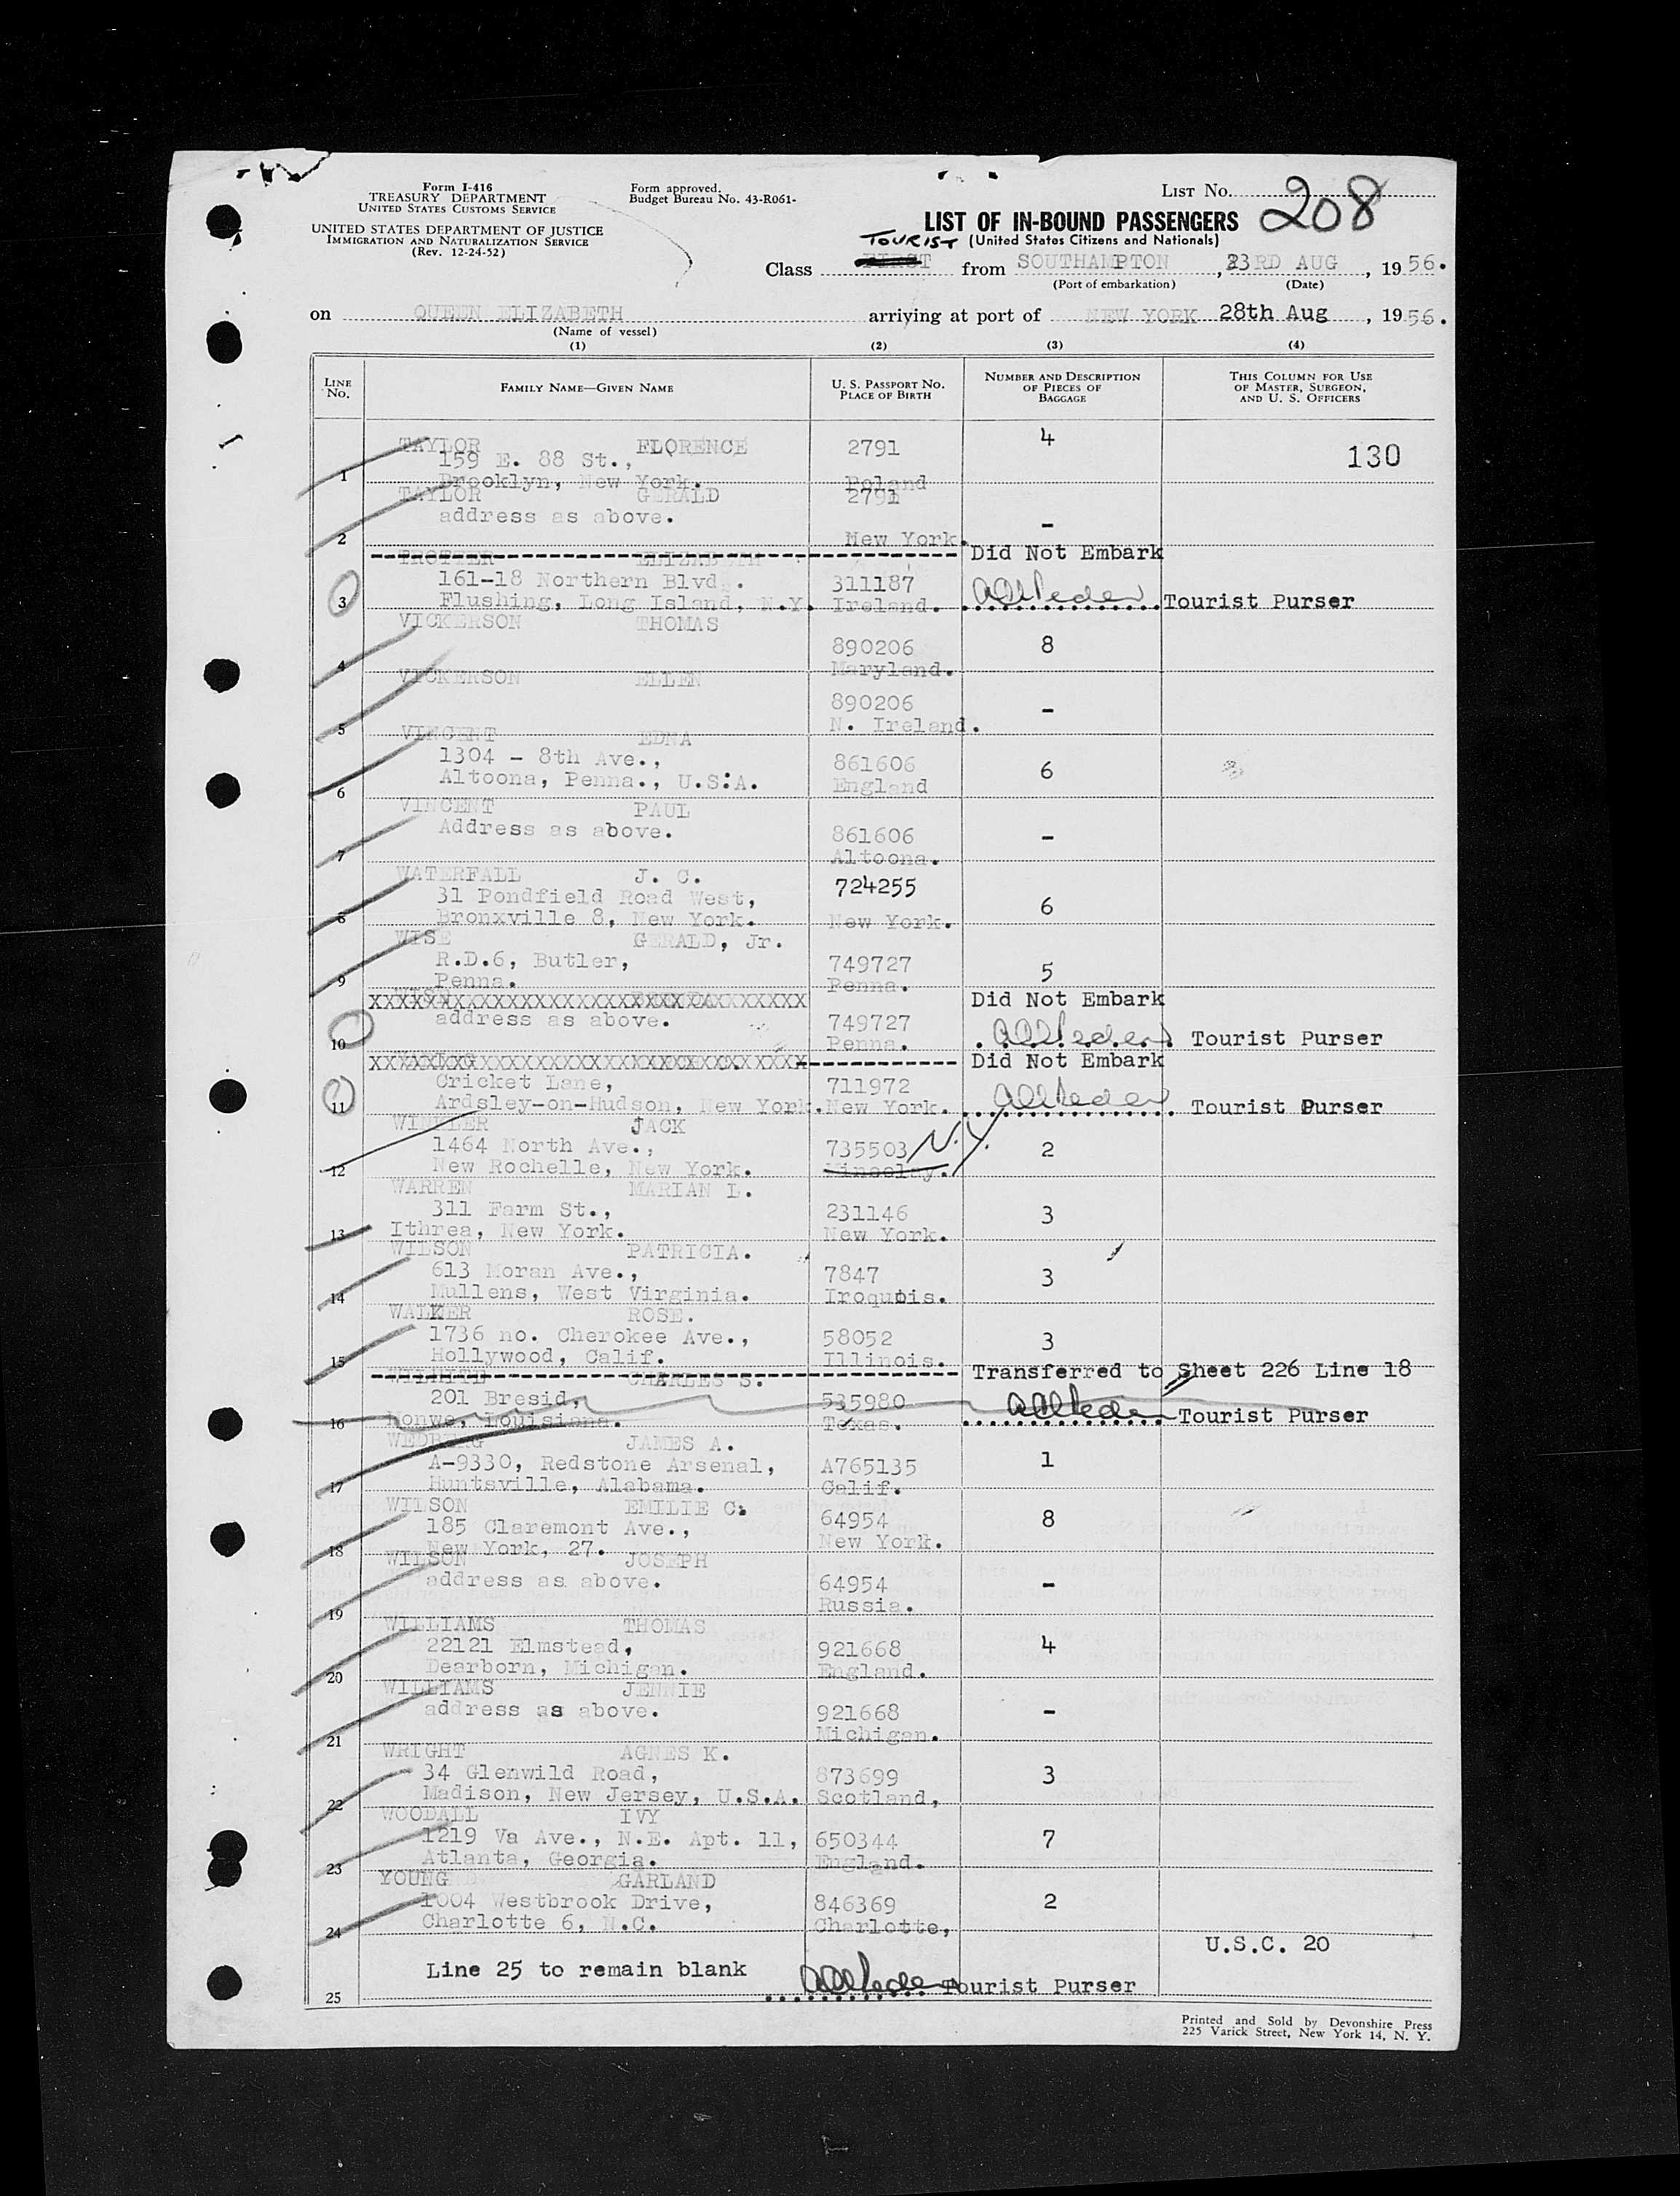 Form I-416
TREASURY DEPARTMENT
UNITED STATES CUSTOMS SERVICE
UNITED STATES DEPARTMENT OF JUSTICE
IMMIGRATION AND NATURALIZATION SERVICE
(Rev. 12-24-52)
Form approved.
Budget Bureau No. 43-R061-
LIST NO. 208
LIST OF IN-BOUND PASSENGERS
TOURIST (United States Citizens and Nationals)
Class FIRST from SOUTHAMPTON, 23RD AUG, 1956.
(Port of embarkation) (Date)
on QUEEN ELIZABETH arriving at port of NEW YORK 28th Aug, 1956.
(Name of vessel)
(1) (2) (3) (4)
LINE NO.
FAMILY NAME—GIVEN NAME
U. S. PASSPORT NO.
PLACE OF BIRTH
NUMBER AND DESCRIPTION
OF PIECES OF
BAGGAGE
THIS COLUMN FOR USE
OF MASTER, SURGEON,
AND U. S. OFFICERS
TAYLOR FLORENCE 2791 4
159 E. 88 St., 130
1 Brooklyn, New York. Poland
TAYLOR GERALD 2791
address as above. -
2 New York.
TROTTER ELIZABETH Did Not Embark
161-18 Northern Blvd. 311187
3 Flushing, Long Island, N.Y. Ireland. Tourist Purser
VICKERSON THOMAS
890206 8
4 Maryland.
VICKERSON ELLEN
890206 -
5 N. Ireland.
VINCENT EDNA
1304 - 8th Ave., 861606 6
6 Altoona, Penna., U.S.A. England
VINCENT PAUL
Address as above. 861606 -
7 Altoona.
WATERFALL J. C. 724255
31 Pondfield Road West, 6
8 Bronxville 8, New York. New York.
WISE GERALD, Jr.
R.D.6, Butler, 749727 5
9 Penna. Penna.
XXXXXXXXXXXXXXXXXXXXXXXXXXXXXXXXX Did Not Embark
address as above. 749727
10 Penna. Tourist Purser
XXXXXXXXXXXXXXXXXXXXXXXXXXXXXXXXX Did Not Embark
Cricket Lane, 711972
11 Ardsley-on-Hudson, New York. New York. Tourist Purser
WINKLER JACK
1464 North Ave., 735503 N.Y. 2
12 New Rochelle, New York.
WARREN MARIAN L.
311 Farm St., 231146 3
13 Ithrea, New York. New York.
WILSON PATRICIA.
613 Moran Ave., 7847 3
14 Mullens, West Virginia. Iroquois.
WALKER ROSE.
1736 no. Cherokee Ave., 58052 3
15 Hollywood, Calif. Illinois.
CHARLES S. Transferred to Sheet 226 Line 18
201 Bresid, 535980
16 Louisiana. Texas. Tourist Purser
WEDBERG JAMES A.
A-9330, Redstone Arsenal, A765135 1
17 Huntsville, Alabama. Calif.
WILSON EMILIE C.
185 Claremont Ave., 64954 8
18 New York, 27. New York.
WILSON JOSEPH
address as above. 64954 -
19 Russia.
WILLIAMS THOMAS
22121 Elmstead, 921668 4
20 Dearborn, Michigan. England.
WILLIAMS JENNIE
address as above. 921668 -
21 Michigan.
WRIGHT AGNES K.
34 Glenwild Road, 873699 3
22 Madison, New Jersey, U.S.A. Scotland,
WOODALL IVY
1219 Va Ave., N.E. Apt. 11, 650344 7
23 Atlanta, Georgia. England.
YOUNG GARLAND
1004 Westbrook Drive, 846369 2
24 Charlotte 6, N.C. Charlotte,
U.S.C. 20
Line 25 to remain blank
25 Tourist Purser
Printed and Sold by Devonshire Press
225 Varick Street, New York 14, N. Y.